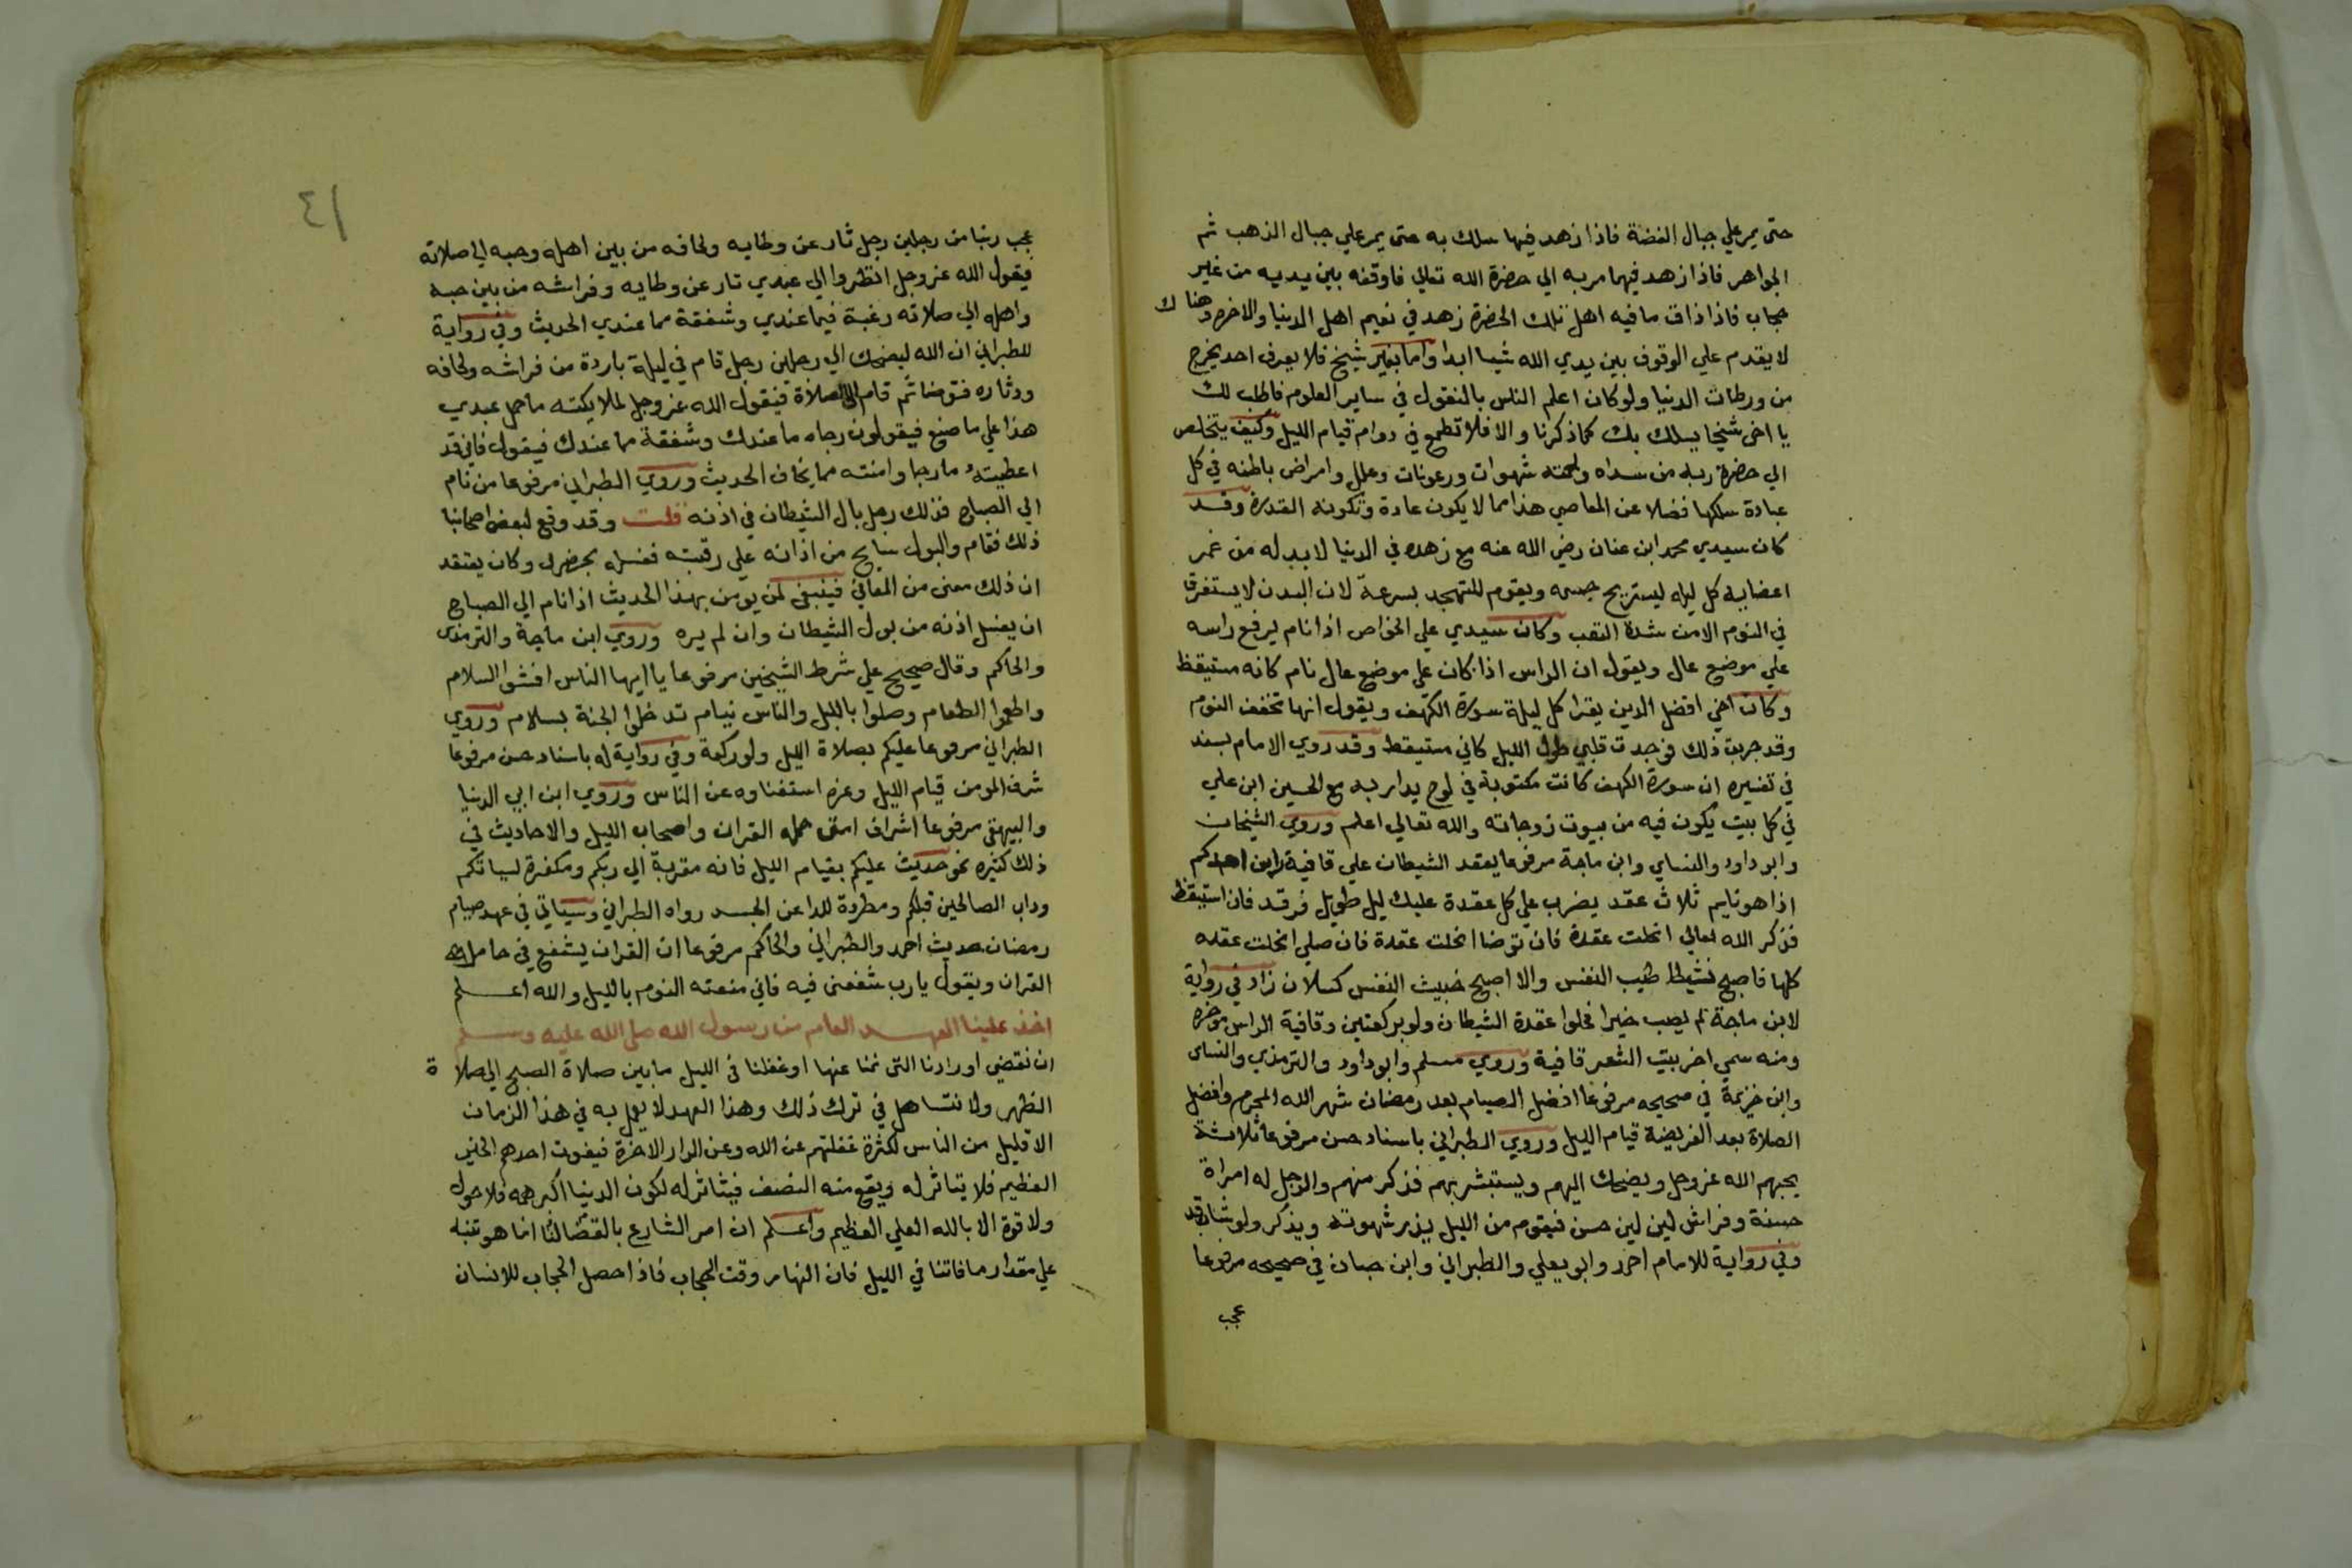 حتى يمر علي جبال الفضة فاذا زهد فيها سلك به حتى يمر علي جبال الذهب ثم
الجواهر فاذا زهد فيها مر به الي حضرة الله تعالي فاوقفه بين يديه من غير
حجاب فاذا ذاق ما فيه اهل تلك الحضرة زهد في نعيم اهل الدنيا والاخرة وهناك
لا يقدم علي الوقوف بين يدي الله شيا ابدا واما بغير شيخ فلا يعرف احد يخرج
من ورطات الدنيا ولو كان اعلم الناس بالنقول في ساير العلوم فاطلب لك
يا اخى شيخا يسلك بك كما ذكرنا والا فلا تطمع في دوام قيام الليل وكيف يتخلص
الي حضرة ربه من سداه ولحمته شهوات ورعونات وعلل وامراض باطنه في كل
عبادة سلكها فضلا عن المعاصي هذا مما لا يكون عادة وتكونه القدرة وقد
كان سيدي محمد ابن عنان رضي الله عنه مع زهده في الدنيا لا بد له من غمر
اعضايه كل ليله ليستريح جسمه ويقوم للتهجد بسرعة لان البدن لا يستغرق
في النوم الا من شدة التعب وكان سيدي علي الخواص اذا نام يرفع راسه
علي موضع عال ويقول ان الراس اذا كان علي موضع عال نام كانه مستيقظ
وكان اخي افضل الدين يقرا كل ليلة سورة الكهف ويقول انها تخفف النوم
وقد جربت ذلك فوجدت قلبي طول الليل كاني مستيقظ وقد روي الامام بسند
في تفسيره ان سورة الكهف كانت مكتوبة في لوح يدار به مع الحسين ابن علي
في كل بيت يكون فيه من بيوت زوجاته والله تعالي اعلم وروي الشيخان
وابو داود والنساي وابن ماجة مرفوعا يعقد الشيطان علي قافية راس احدكم
اذا هو نايم ثلاث عقد يضرب علي كل عقدة عليك ليل طويل فرقد فان استيقظ
فذكر الله تعالي انحلت عقدة فان توضا انحلت عقدة فان صلي انحلت عقده
كلها فاصبح نشيطا طيب النفس والا اصبح خبيث النفس كسلان زاد في رواية
لابن ماجة لم يصب خيرا فحلوا عقدة الشيطان ولو بركعتين وقافية الراس موخره
ومنه سمي اخر بيت الشعر قافية وروي مسلم وابو داود والترمذي والنساى
وابن خزيمة في صحيحه مرفوعا افضل الصيام بعد رمضان شهر الله المحرم وافضل
الصلاة بعد الفريضة قيام الليل وروي الطبراني باسناد حسن مرفوعا ثلاثة
يحبهم الله عز وجل ويضحك اليهم ويستبشر بهم فذكر منهم والرجل له امراة
حسنة وفراش لين لين حسن فيقوم من الليل يذر شهوته ويذكر ولو شا رقد
وفي رواية للامام احمد وابو يعلي والطبراني وابن حبان في صحيحه مرفوعا
عجب
٤١
عجب ربنا من رجلين رجل ثار عن وطايه ولحافه من بين اهله وحبه الي صلاته
فيقول الله عز وجل انظروا الي عبدي ثار عن وطايه وفراشه من بين حبه
واهله الي صلاته رغبة فيما عندي وشفقة مما عندي الحديث وفي رواية
للطبراني ان الله ليضحك الي رجلين رجل قام في ليلة باردة من فراشه ولحافه
ودثاره فتوضا ثم قام الي الصلاة فيقول الله عز وجل لملايكته ما حمل عبدي
هذا علي ما صنع فيقولون رجاه ما عندك وشفقة مما عندك فيقول فاني قد
اعطيته ما رجا وامنته مما يخاف الحديث وروي الطبراني مرفوعا من نام
الي الصباح فذلك رجل بال الشيطان في اذنه قلت وقد وقع لبعض اصحابنا
ذلك فقام والبول سايح من اذانه علي رقبته فغسله بحضرلى وكان يعتقد
ان ذلك معنى من المعاني فينبغي لمن يومن بهذا الحديث اذا نام الي الصباح
ان يغسل اذنه من بول الشيطان وان لم يره وروي ابن ماجة والترمذى
والحاكم وقال صحيح علي شرط الشيخين مرفوعا يا ايها الناس افشوا السلام
واطعموا الطعام وصلوا بالليل والناس نيام تدخلوا الجنة بسلام وروي
الطبراني مرفوعا عليكم بصلاة الليل ولو ركعة وفي رواية له باسناد حسن مرفوعا
شرف المومن قيام الليل وعزه استغناوه عن الناس وروي ابن ابي الدنيا
والبيهقى مرفوعا اشراف امتى حملة القران واصحاب الليل والاحاديث في
ذلك كثيره نحو حديث عليكم بقيام الليل فانه مقربة الي ربكم ومكفرة لسياتكم
وداب الصالحين قبلكم ومطردة للدا عن الجسد رواه الطبراني وسياتي في عهد صيام
رمضان حديث احمد والطبراني والحاكم مرفوعا ان القران يشفع في حامل
القران ويقول يا رب شفعنى فيه فاني منعته النوم بالليل والله اعلم
اخذ علينا العهد العام من رسول الله صلى الله عليه وسلم
ان نقضي اورادنا التى نمنا عنها او غفلنا في الليل ما بين صلاة الصبح الي صلاة
الظهر ولا نتساهل في ترك ذلك وهذا العهد لا يعمل به في هذا الزمان
الا قليل من الناس لكثرة غفلتهم عن الله وعن الدار الاخرة فيفوت احدهم الخير
العظيم فلا يتاثر له ويقع منه النصف فيتاثر له لكون الدنيا اكبر همه فلا حول
ولا قوة الا بالله العلي العظيم واعلم ان امر الشارع بالقضا لنا انما هو تنبه
علي مقدار ما فاتنا في الليل فان النهار وقت الحجاب فاذا حصل الحجاب للانسان